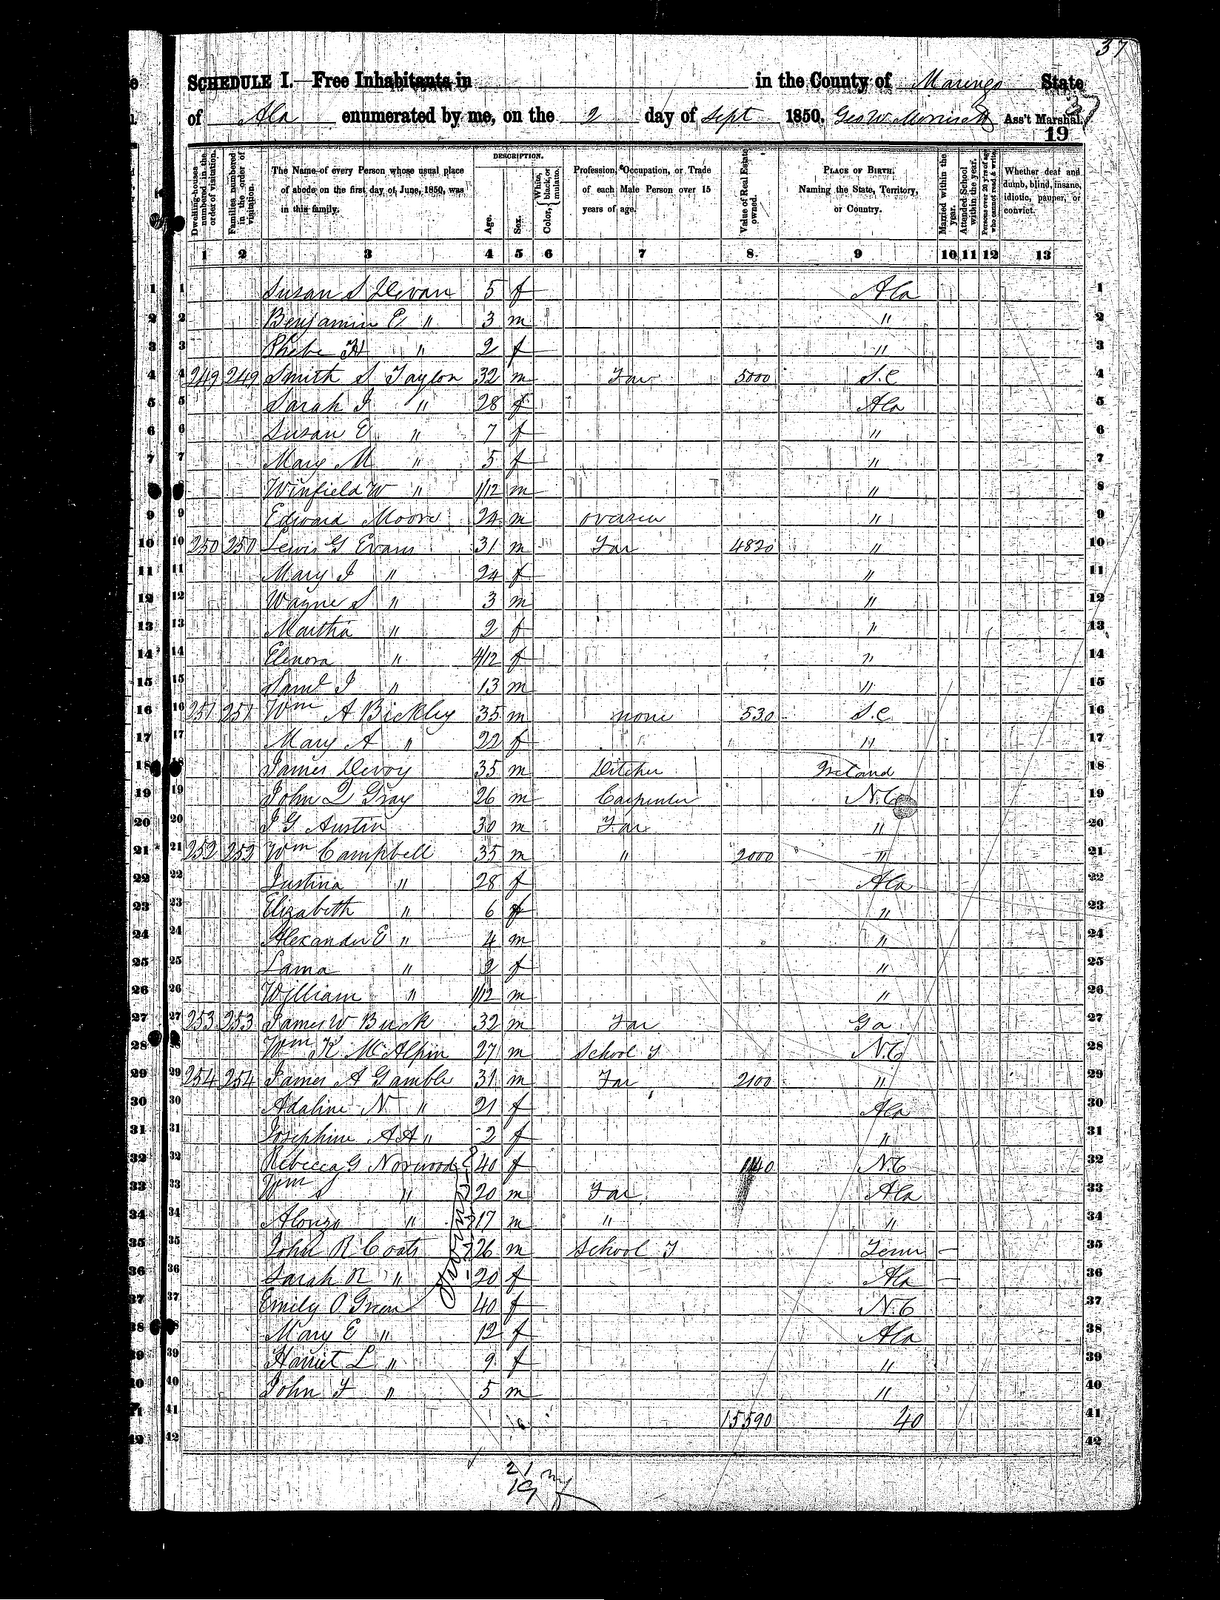 37
SCHEDULE I.—Free Inhabitants in in the County of Marengo State
of Ala enumerated by me, on the 2 day of Sept 1850. Geo W. Ass't Marshal.
19
DESCRIPTION.
Dwelling-houses numbered in the order of visitation. Families numbered in the order of visitation. The Name of every Person whose usual place of abode on the first day of June, 1850, was in this family. Age. Sex. Color, White, black, or mulatto. Profession, Occupation, or Trade of each Male Person over 15 years of age. Value of Real Estate owned. PLACE OF BIRTH. Naming the State, Territory, or Country. Married within the year. Attended School within the year. Persons over 20 y'rs of age who cannot read & write. Whether deaf and dumb, blind, insane, idiotic, pauper, or convict.
1 2 3 4 5 6 7 8. 9 10 11 12 13
1 Susan S 5 f Ala 1
2 Benjamin E " 3 m " 2
3 Phebe H " 2 f " 3
4 249 249 Smith S Taylor 32 m Far 5000 S.C 4
5 Sarah J " 28 f Ala 5
6 Susan E " 7 f " 6
7 Mary M " 5 f " 7
8 Winfield W " 1/12 m " 8
9 Edward Moore 24 m overseer " 9
10 250 250 Lewis G Evans 31 m Far 4820 " 10
11 Mary J " 24 f " 11
12 Wayne S " 3 m " 12
13 Martha " 2 f " 13
14 Elenora " 4/12 f " 14
15 Saml J " 13 m " 15
16 251 251 Wm A Bickley 35 m none 530 S.C 16
17 Mary A " 22 f " " 17
18 James Devoy 35 m Ditcher Ireland 18
19 John Q Gray 26 m Carpenter N.C 19
20 J G Austin 30 m Far " 20
21 252 252 Wm Campbell 35 m " 2000 " 21
22 Justina " 28 f Ala 22
23 Elizabeth " 6 f " 23
24 Alexander E " 4 m " 24
25 " 2 f " 25
26 William " 1/12 m " 26
27 253 253 James W Buck 32 m Far Ga 27
28 Wm K McAlpin 27 m School T N.C 28
29 254 254 James A Gamble 31 m Far 2100 " 29
30 Adaline N " 21 f Ala 30
31 Josephine A A " 2 f " 31
32 Rebecca G Norwood 40 f 1140 N.C 32
33 Wm S " 20 m Far Ala 33
34 Alonzo " 17 m " " 34
35 John R Coats 26 m School T Tenn — 35
36 Sarah R " 20 f Ala — 36
37 Emily O Green 40 f N.C 37
38 Mary E " 12 f Ala 38
39 Harriet L " 9 f " 39
40 John F " 5 m " 40
41 15590 40 41
42 42
21 m
19 f